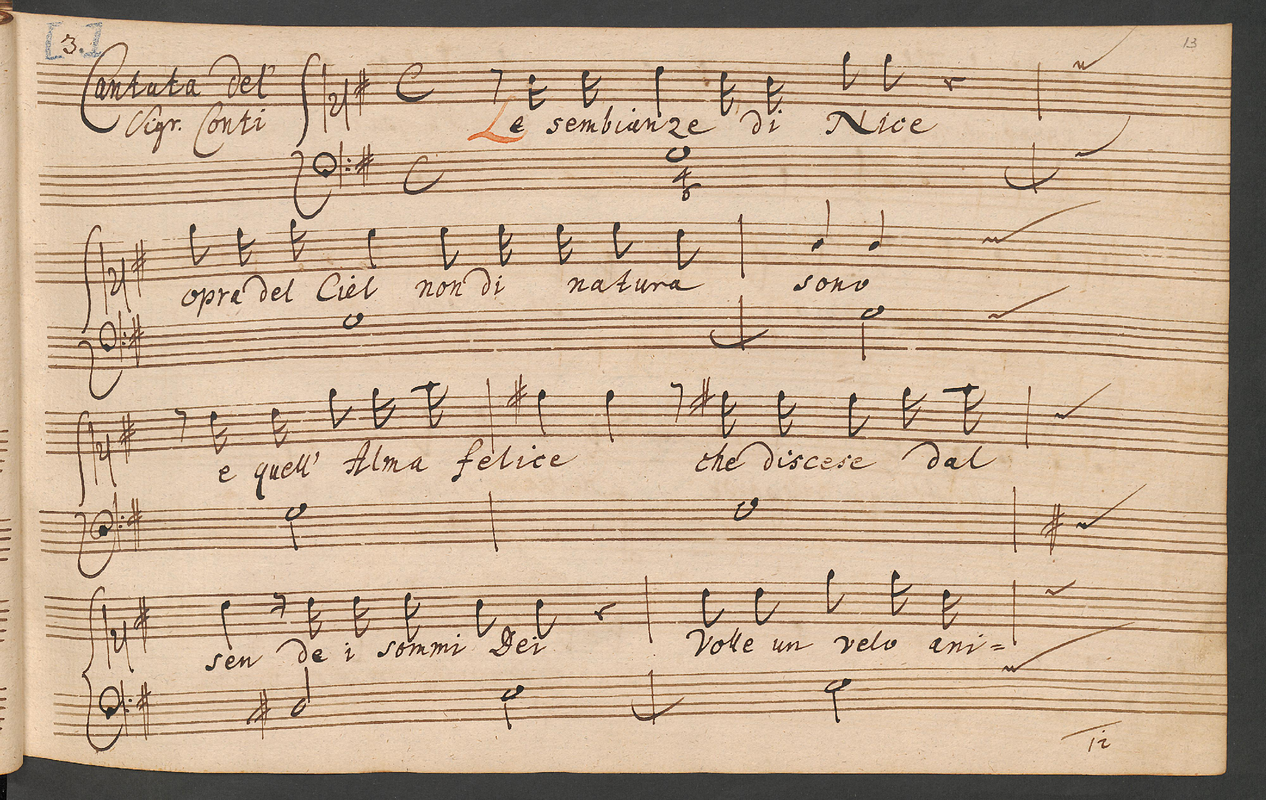 [3.]
13
Cantata del
Sigr. Conti
Le sembianze di Nice
opra del Ciel non di natura sono
e quell' Alma felice che discese dal
sen de i sommi Dei Volle un velo ani=